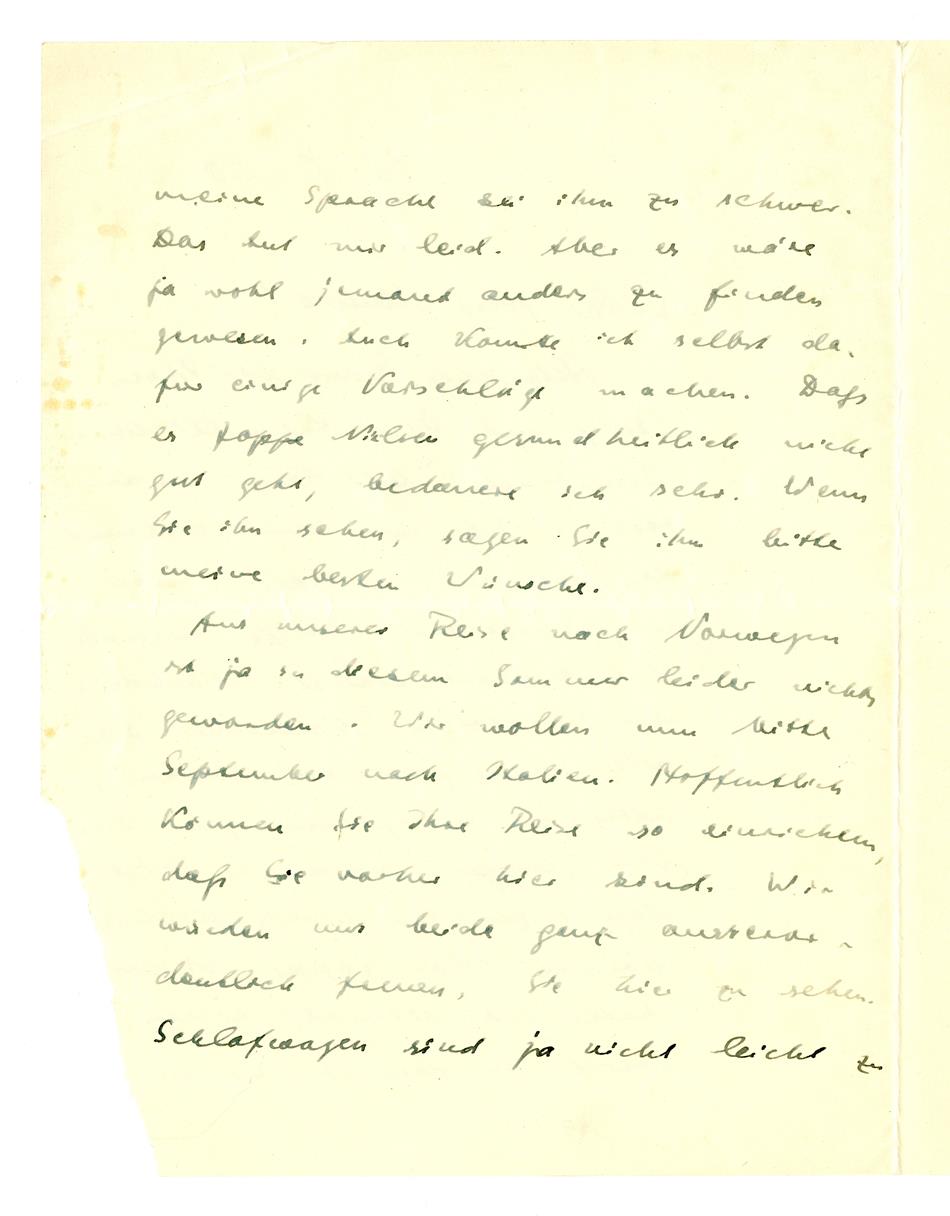 meine Sprache sei ihm zu schwer.
Das tut mir leid. Aber es wäre
ja wohl jemand anders zu finden
gewesen. Auch konnte ich selbst da-
für einige Vorschläge machen. Daß
es Hoppe Nielsen gesundheitlich nicht
gut geht, bedauere ich sehr. Wenn
Sie ihn sehen, sagen Sie ihm bitte
meine besten Wünsche.
Aus unserer Reise nach Norwegen
ist ja in diesem Sommer leider nichts
geworden. Wir wollen nun Mitte
September nach Italien. Hoffentlich
können Sie Ihre Reise so einrichten,
daß Sie vorher hier sind. Wir
würden uns beide ganz ausseror-
dentlich freuen, Sie hier zu sehen.
Schlafwagen sind ja nicht leicht zu